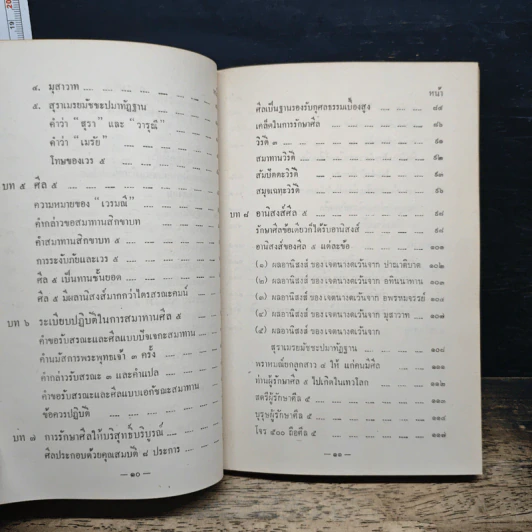 ๔. มุสาวาท
๕. สุราเมรยมัชชะปมาทัฏฐาน
คำว่า “สุรา” และ “วารุณี”
คำว่า “เมรัย”
โทษของเวร ๕
บท ๕ ศีล ๕
ความหมายของ “เวรมณี”
คำกล่าวขอสมาทานสิกขาบท
คำสมาทานสิกขาบท ๕
การระงับภัยและเวร ๕
ศีล ๕ เป็นทานชั้นยอด
ศีล ๕ มีผลานิสงส์มากกว่าไตรสรณะคมน์
บท ๖ ระเบียบปฏิบัติในการสมาทานศีล ๕
คำขอรับสรณะและศีลแบบปัจเจกะสมาทาน
คำนมัสการพระพุทธเจ้า ๓ ครั้ง
คำกล่าวรับสรณะ ๓ และคำแปล
คำขอรับสรณะและศีลแบบเอกัชฌะสมาทาน
ข้อควรปฏิบัติ
บท ๗ การรักษาศีลให้บริสุทธิ์บริบูรณ์
ศีลประกอบด้วยคุณสมบัติ ๘ ประการ
— ๑๐ —
หน้า
ศีลเป็นฐานรองรับกุศลธรรมเบื้องสูง ๘๕
เคล็ดในการรักษาศีล ๘๖
วิรัติ ๓ ๙๑
สมาทานวิรัติ ๙๒
สัมปัตตะวิรัติ ๙๓
สมุจเฉทะวิรัติ ๙๕
บท ๘ อานิสงส์ศีล ๕ ๙๘
รักษาศีลข้อเดียวก็ได้รับอานิสงส์ ๙๘
อานิสงส์ของศีล ๕ แต่ละข้อ ๑๐๑
(๑) ผลอานิสงส์ ของเจตนางดเว้นจาก ปาณาติบาต ๑๐๒
(๒) ผลอานิสงส์ ของเจตนางดเว้นจาก อทินนาทาน ๑๐๓
(๓) ผลอานิสงส์ ของเจตนางดเว้นจาก อพรหมจรรย์
(๔) ผลอานิสงส์ ของเจตนางดเว้นจาก มุสาวาท ๑๐๗
(๕) ผลอานิสงส์ ของเจตนางดเว้นจาก
สุราเมรยมัชชะปมาทัฏฐาน ๑๐๘
พราหมณ์ยกลูกสาว ๔ ให้ แก่คนมีศีล ๑๑๐
ท่านผู้รักษาศีล ๕ ไปเกิดในเทวโลก ๑๑๒
สตรีผู้รักษาศีล ๕
บุรุษผู้รักษาศีล ๕ ๑๑๔
โจร ๕๐๐ ถือศีล ๕ ๑๑๗
— ๑๑ —